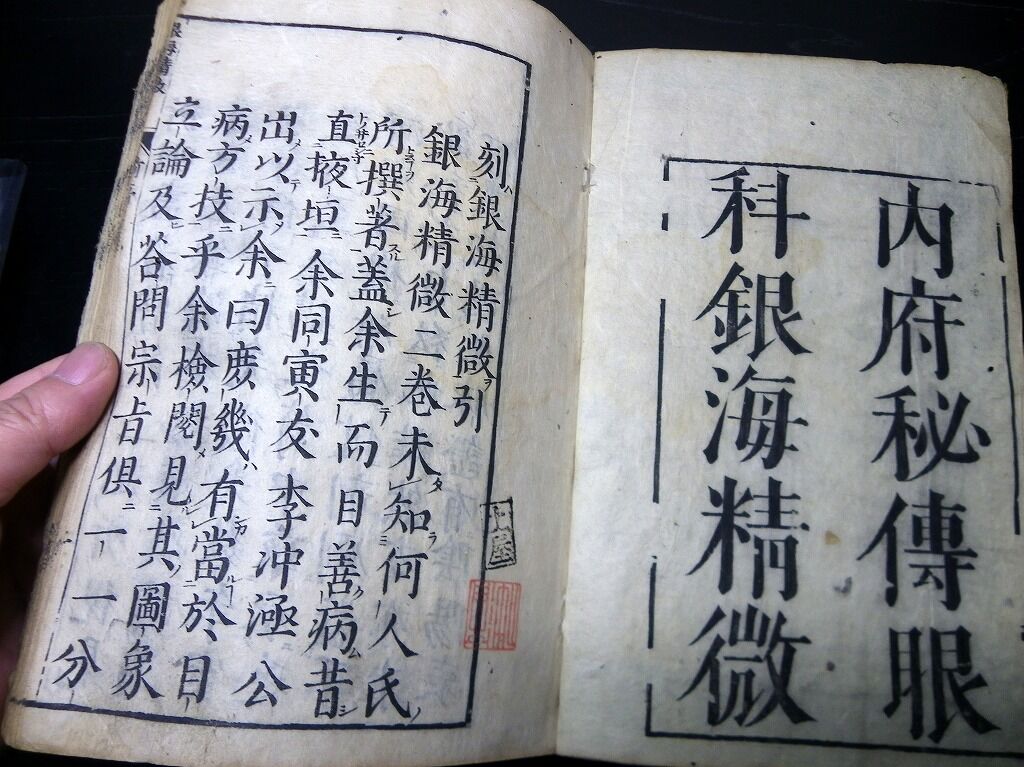 內府秘傳眼
科銀海精微
刻銀海精微引
銀海精微二卷未知何人氏
所撰著蓋余生而目善病昔
直掖垣余同寅友李冲涵公
出以示余余曰庶幾有當於目
病方技乎余檢閱見其圖象
立論及荅問宗旨俱一一分